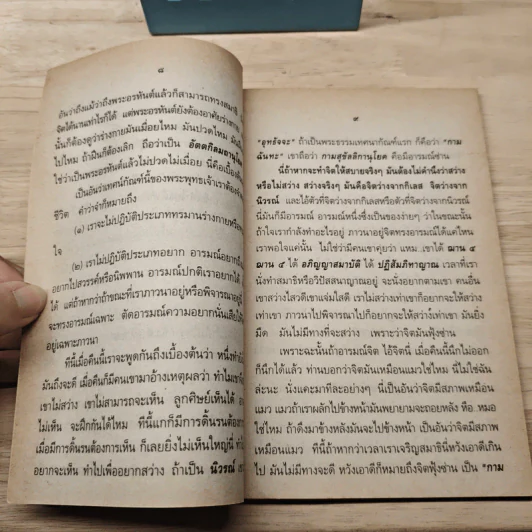 ๘
อันว่าถึงแม้ว่าถึงพระอรหันต์แล้วก็สามารถทรงสมาธิ
จิตได้นานเท่าไรก็ได้ แต่พระอรหันต์ยังต้องอาศัยร่างกาย
นั้นก็ต้องดูว่าร่างกายมันเมื่อยไหม มันปวดไหม มัน
ไปไหม ถ้าฝืนก็ต้องเลิก ถือว่าเป็น อัตตกิลมถานุโยค
ใช่ว่าเป็นพระอรหันต์แล้วไม่ปวดไม่เมื่อย นี่คือเบื้อง
เป็นอันว่าเทศน์กัณฑ์นี้ของพระพุทธเจ้าเราต้อง
ชีวิต คำว่าจำก็หมายถึง
(๑) เราจะไม่ปฏิบัติประเภททรมานร่างกายหรือ
ใจ
(๒) เราไม่ปฏิบัติประเภทอยาก อารมณ์อยากถึง
อยากไปสวรรค์หรือนิพพาน อารมณ์ปกติเราอยากได้
ได้ แต่ถ้าหากว่าถ้าขณะที่เราภาวนาอยู่หรือพิจารณาอยู่
จะทรงอารมณ์เฉพาะ ตัดอารมณ์ความอยากนั่นเสีย
อยู่เฉพาะภาวนา
ทีนี้เมื่อคืนนี้เราจะพูดกันถึงเบื้องต้นว่า หนึ่งทำ
มันถึงจะดี เมื่อคืนก็มีคนเขามาอ้างเหตุผลว่า ทำไมเขา
เขาไม่สว่าง เขาไม่สามารถจะเห็น ลูกศิษย์เห็นได้
ไม่เห็น จะฝึกกันได้ไหม ทีนี้แกก็มีการดิ้นรนต้องการ
เมื่อมีการดิ้นรนต้องการเห็น ก็เลยยังไม่เห็นใหญ่
อยากจะเห็น ทำไปเพื่ออยากสว่าง ถ้าเป็น นิวรณ์
๙
"อุทธัจจะ" ถ้าเป็นพระธรรมเทศนากัณฑ์แรก ก็คือว่า "กาม
ฉันทะ" เขาถือว่า กามสุขัลลิกานุโยค คือมีอารมณ์ซ่าน
นี่ถ้าหากจะทำจิตให้สบายจริงๆ มันต้องไม่คำนึงว่าสว่าง
หรือไม่สว่าง สว่างจริงๆ มันคือจิตว่างจากกิเลส จิตว่างจาก
นิวรณ์ และไอ้ตัวที่จิตว่างจากกิเลสหรือตัวที่จิตว่างจากนิวรณ์
นี่มันก็มีอารมณ์ อารมณ์หนึ่งซึ่งเป็นของง่ายๆ ว่าในขณะนั้น
ถ้าใจเรากำลังทำอะไรอยู่ ภาวนาอยู่จิตทรงอารมณ์ได้แค่ไหน
เราพอใจแค่นั้น ไม่ใช่ว่ามีคนเขาคุยว่า แหม เขาได้ ฌาน ๔
ฌาน ๕ ได้ อภิญญาสมาบัติ ได้ ปฏิสัมภิทาญาณ เวลาที่เรา
นั่งทำสมาธิหรือวิปัสสนาญาณอยู่ จะนั่งอยากตามเขา คนอื่น
เขาสว่างไสวดีเขาแจ่มใสดี เราไม่สว่างเท่าเขาก็อยากจะให้สว่าง
เท่าเขา ภาวนาไปพิจารณาไปก็อยากจะให้สว่างเท่าเขา มันยิ่ง
มืด มันไม่มีทางที่จะสว่าง เพราะว่าจิตมันฟุ้งซ่าน
เพราะฉะนั้นถ้าอารมณ์จิต ไอ้จิตนี่ เมื่อคืนนี้นึกไม่ออก
ก็นึกได้แล้ว ท่านบอกว่าจิตมันเหมือนแมวใช่ไหม นี่ไม่ใช่ฉัน
ล่ะนะ นั่งแคะมาทีละอย่างๆ นี่เป็นอันว่าจิตมีสภาพเหมือน
แมว แมวถ้าเราผลักไปข้างหน้ามันพยายามจะถอยหลัง หือ หมอ
ใช่ไหม ถ้าดึงมาข้างหลังมันจะไปข้างหน้า เป็นอันว่าจิตมีสภาพ
เหมือนแมว ทีนี้ถ้าหากว่าเวลาเราเจริญสมาธินี่หวังเอาดีเกิน
ไป มันไม่มีทางจะดี หวังเอาดีก็หมายถึงจิตฟุ้งซ่าน เป็น "กาม